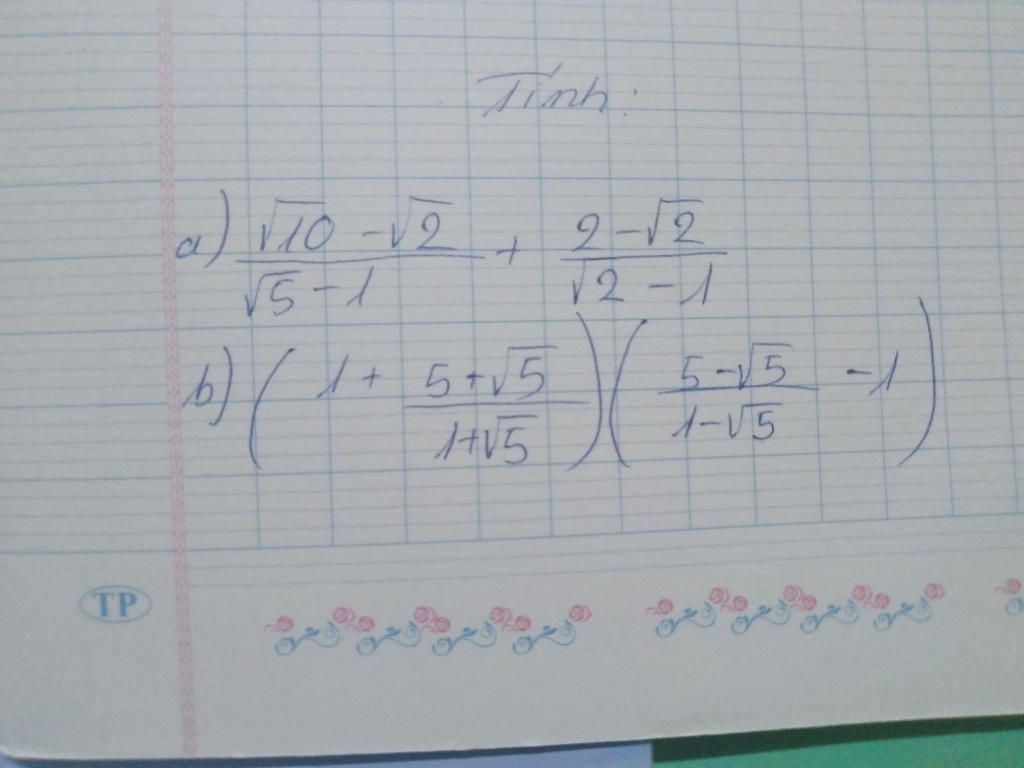 Tính:
a) \frac{\sqrt{10} - \sqrt{2}}{\sqrt{5} - 1} + \frac{2 - \sqrt{2}}{\sqrt{2} - 1}
b) \left( 1 + \frac{5 + \sqrt{5}}{1 + \sqrt{5}} \right) \left( \frac{5 - \sqrt{5}}{1 - \sqrt{5}} - 1 \right)
TP